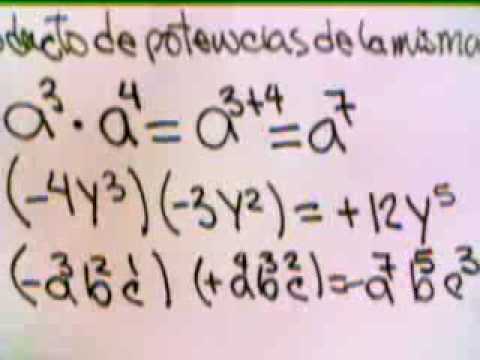 oducto de potencias de la misma
a³ · a⁴ = a³⁺⁴ = a⁷
(-4y³)(-3y²) = +12y⁵
(-a³b²c¹)(+a⁴b³c²)=-a⁷b⁵c³